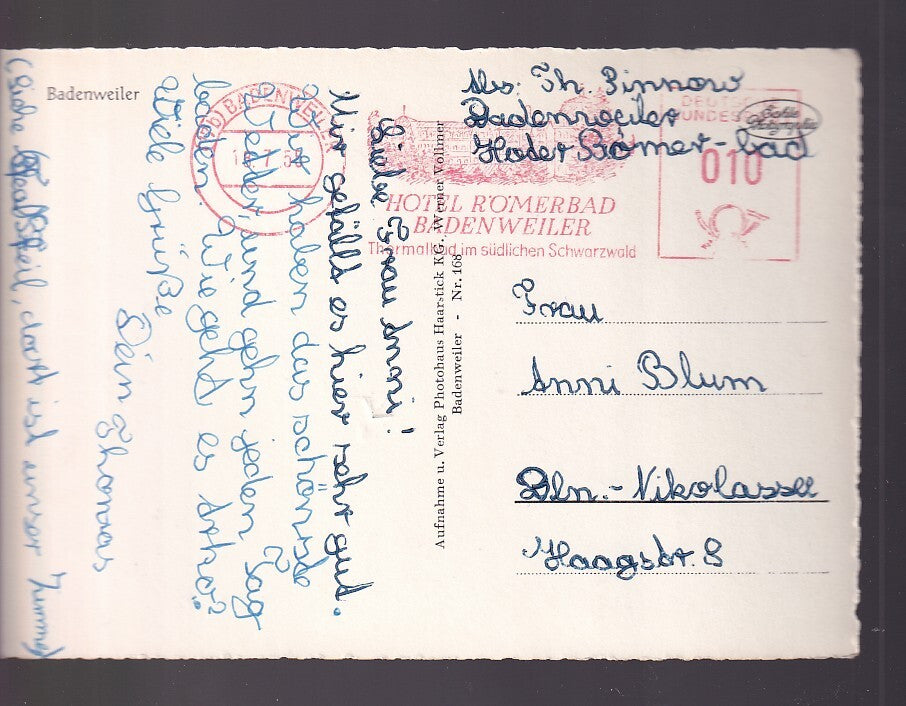 Badenweiler
Liebe Frau Anni!
Mir gefällt es hier sehr gut.
Wir haben das schönste
Wetter, und gehn jeden Tag
baden. Wie geht es
Viele Grüße
Dein Thomas
(Siehe Pfeil, dort ist unser Zimmer)
Aufnahme u. Verlag Photohaus Haarstick KG., Werner Vollmer
Badenweiler - Nr. 168
Abs: Th. Pinnow
Badenweiler
Hotel Römer-bad
BADENWEILER
HOTEL RÖMERBAD
BADENWEILER
Thermalbad im südlichen Schwarzwald
DEUTSCHE
BUNDESPOST
010
Frau
Anni Blum
Bln.-Nikolassee
Haagstr. 8